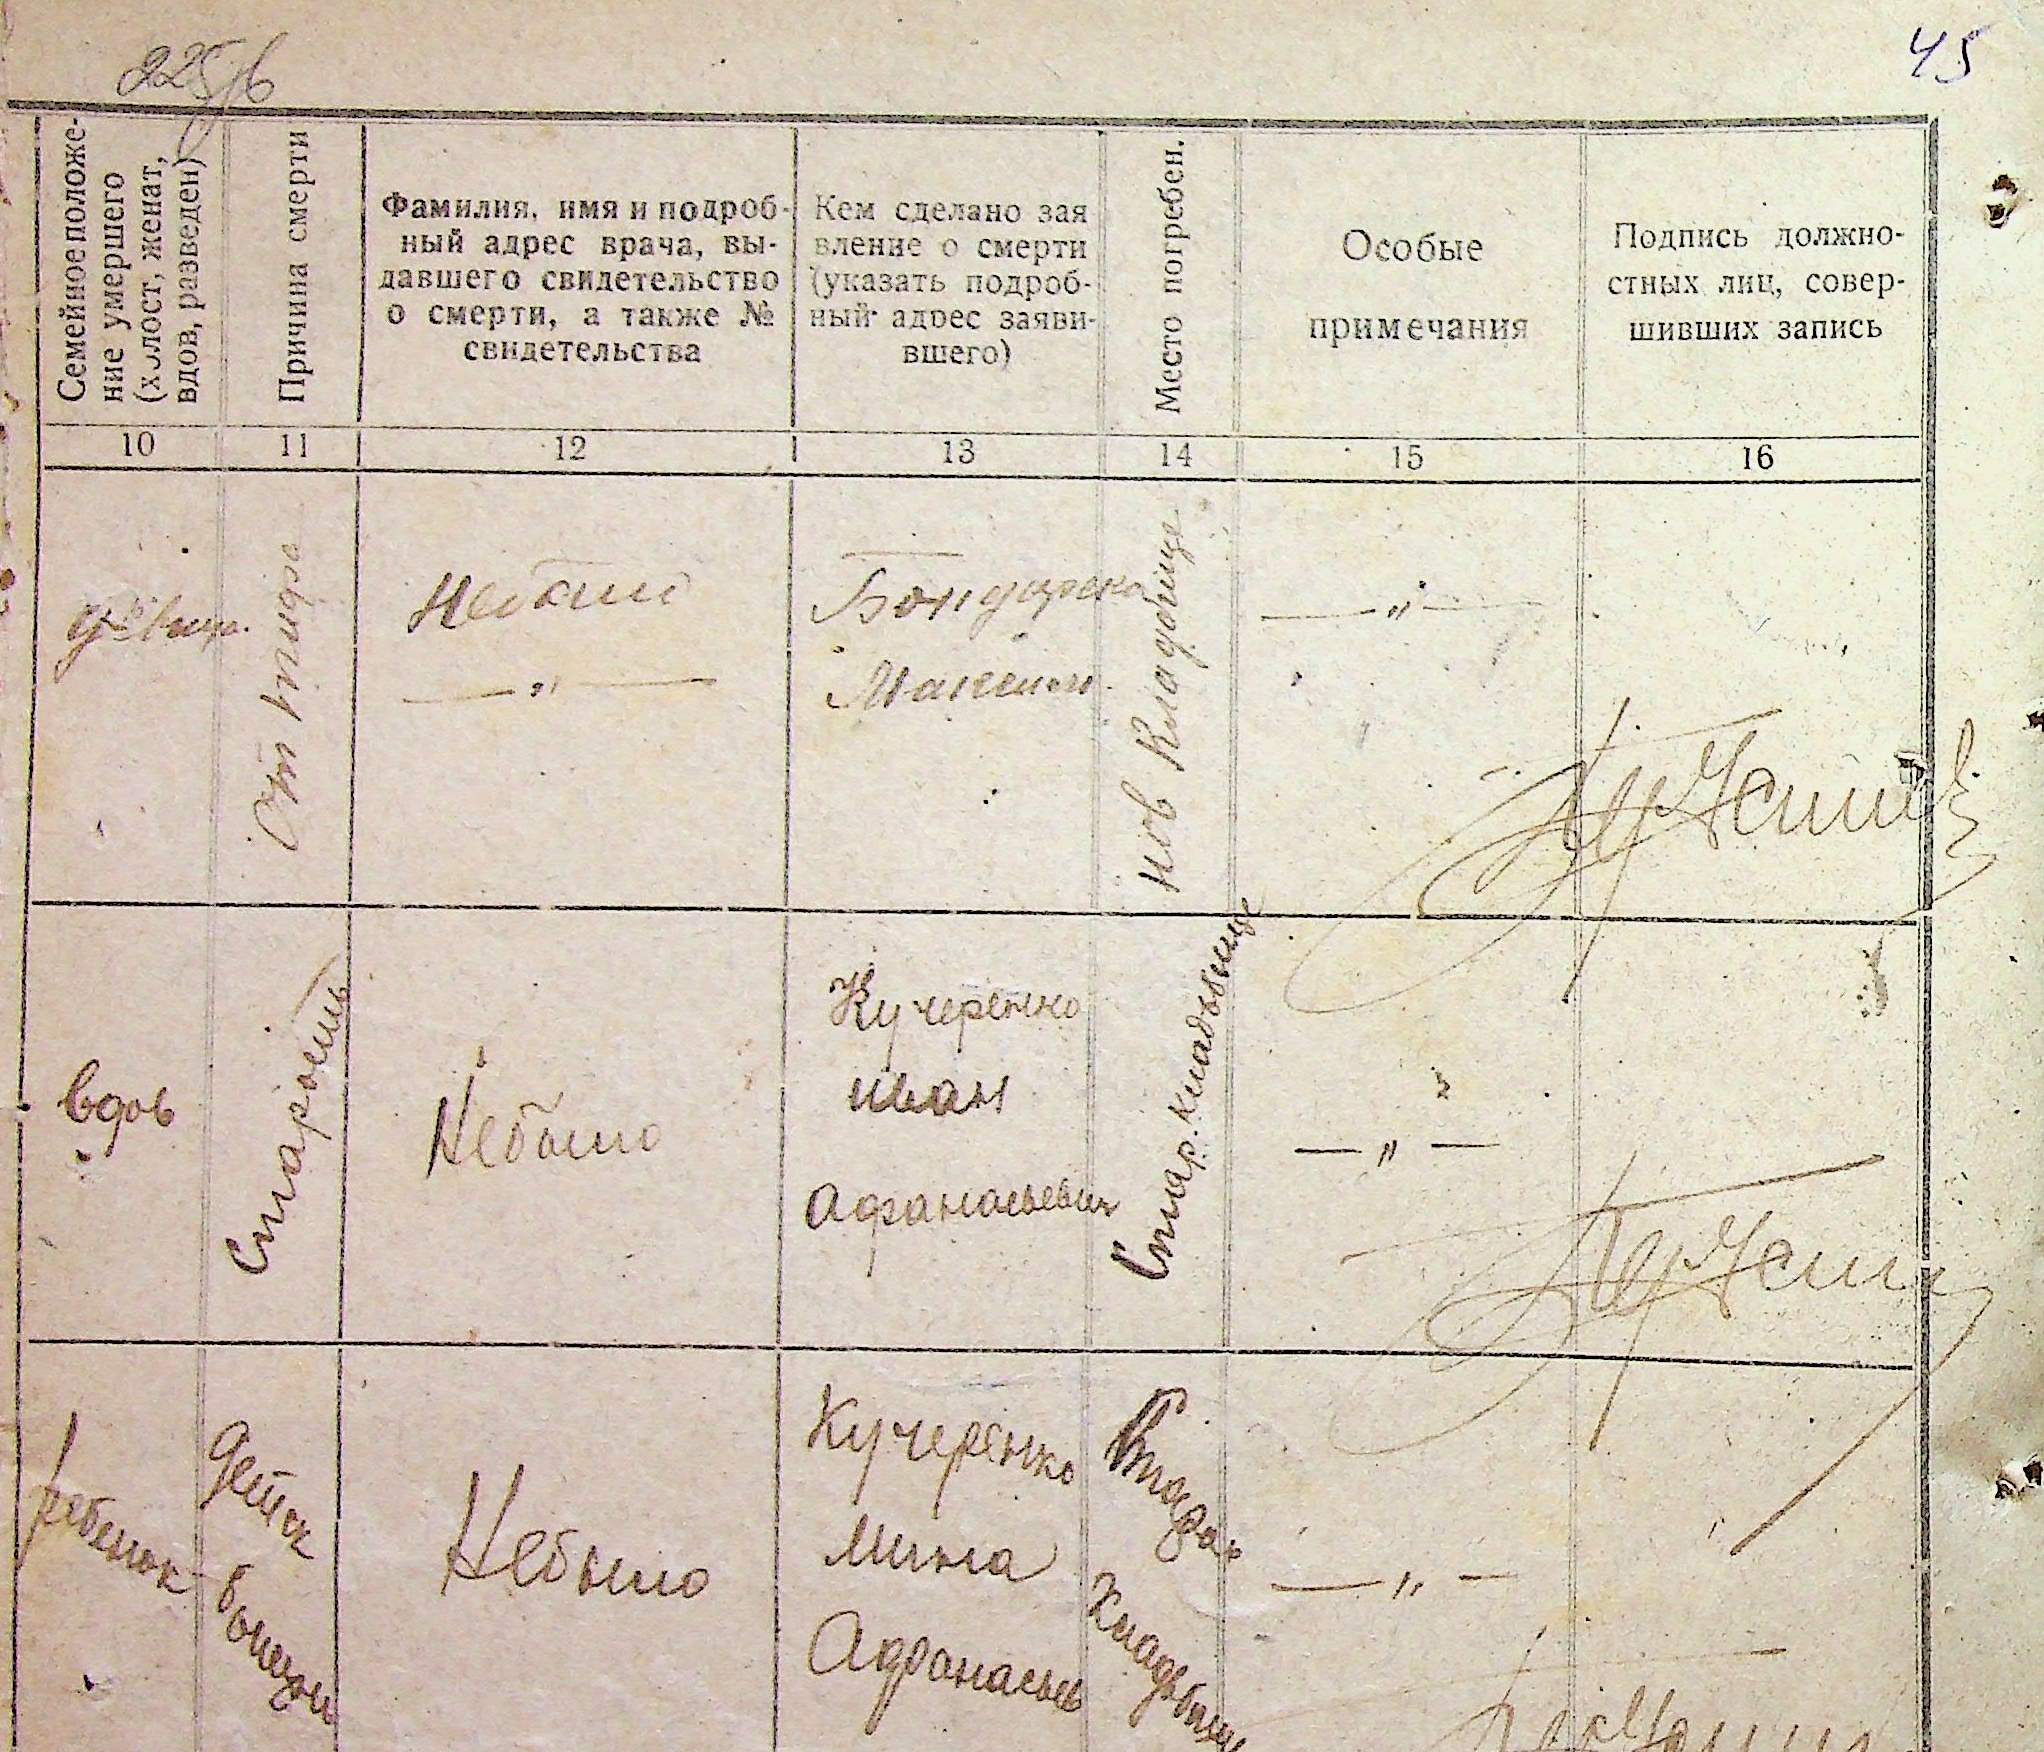 45
Семейное положе-
ние умершего
(холост, женат,
вдов, разведен)
Причина смерти
Фамилия, имя и подроб-
ный адрес врача, вы-
давшего свидетельство
о смерти, а также №
свидетельства
Кем сделано зая
вление о смерти
(указать подроб-
ный адрес заяви-
вшего)
Место погребен.
Особые
примечания
Подпись должно-
стных лиц, совер-
шивших запись
10 11 12 13 14 15 16
девица.
От тифа
— " —
Бондаренко
Максим
нов Кладбище
— " —
вдов
Старость
Небыло
Кучеренко
иван
Афанасьевич
Стар. кладбище
— " —
ребенок
Детск
Небыло
Кучеренко
Мина
Афонасьев
Старое
— " —